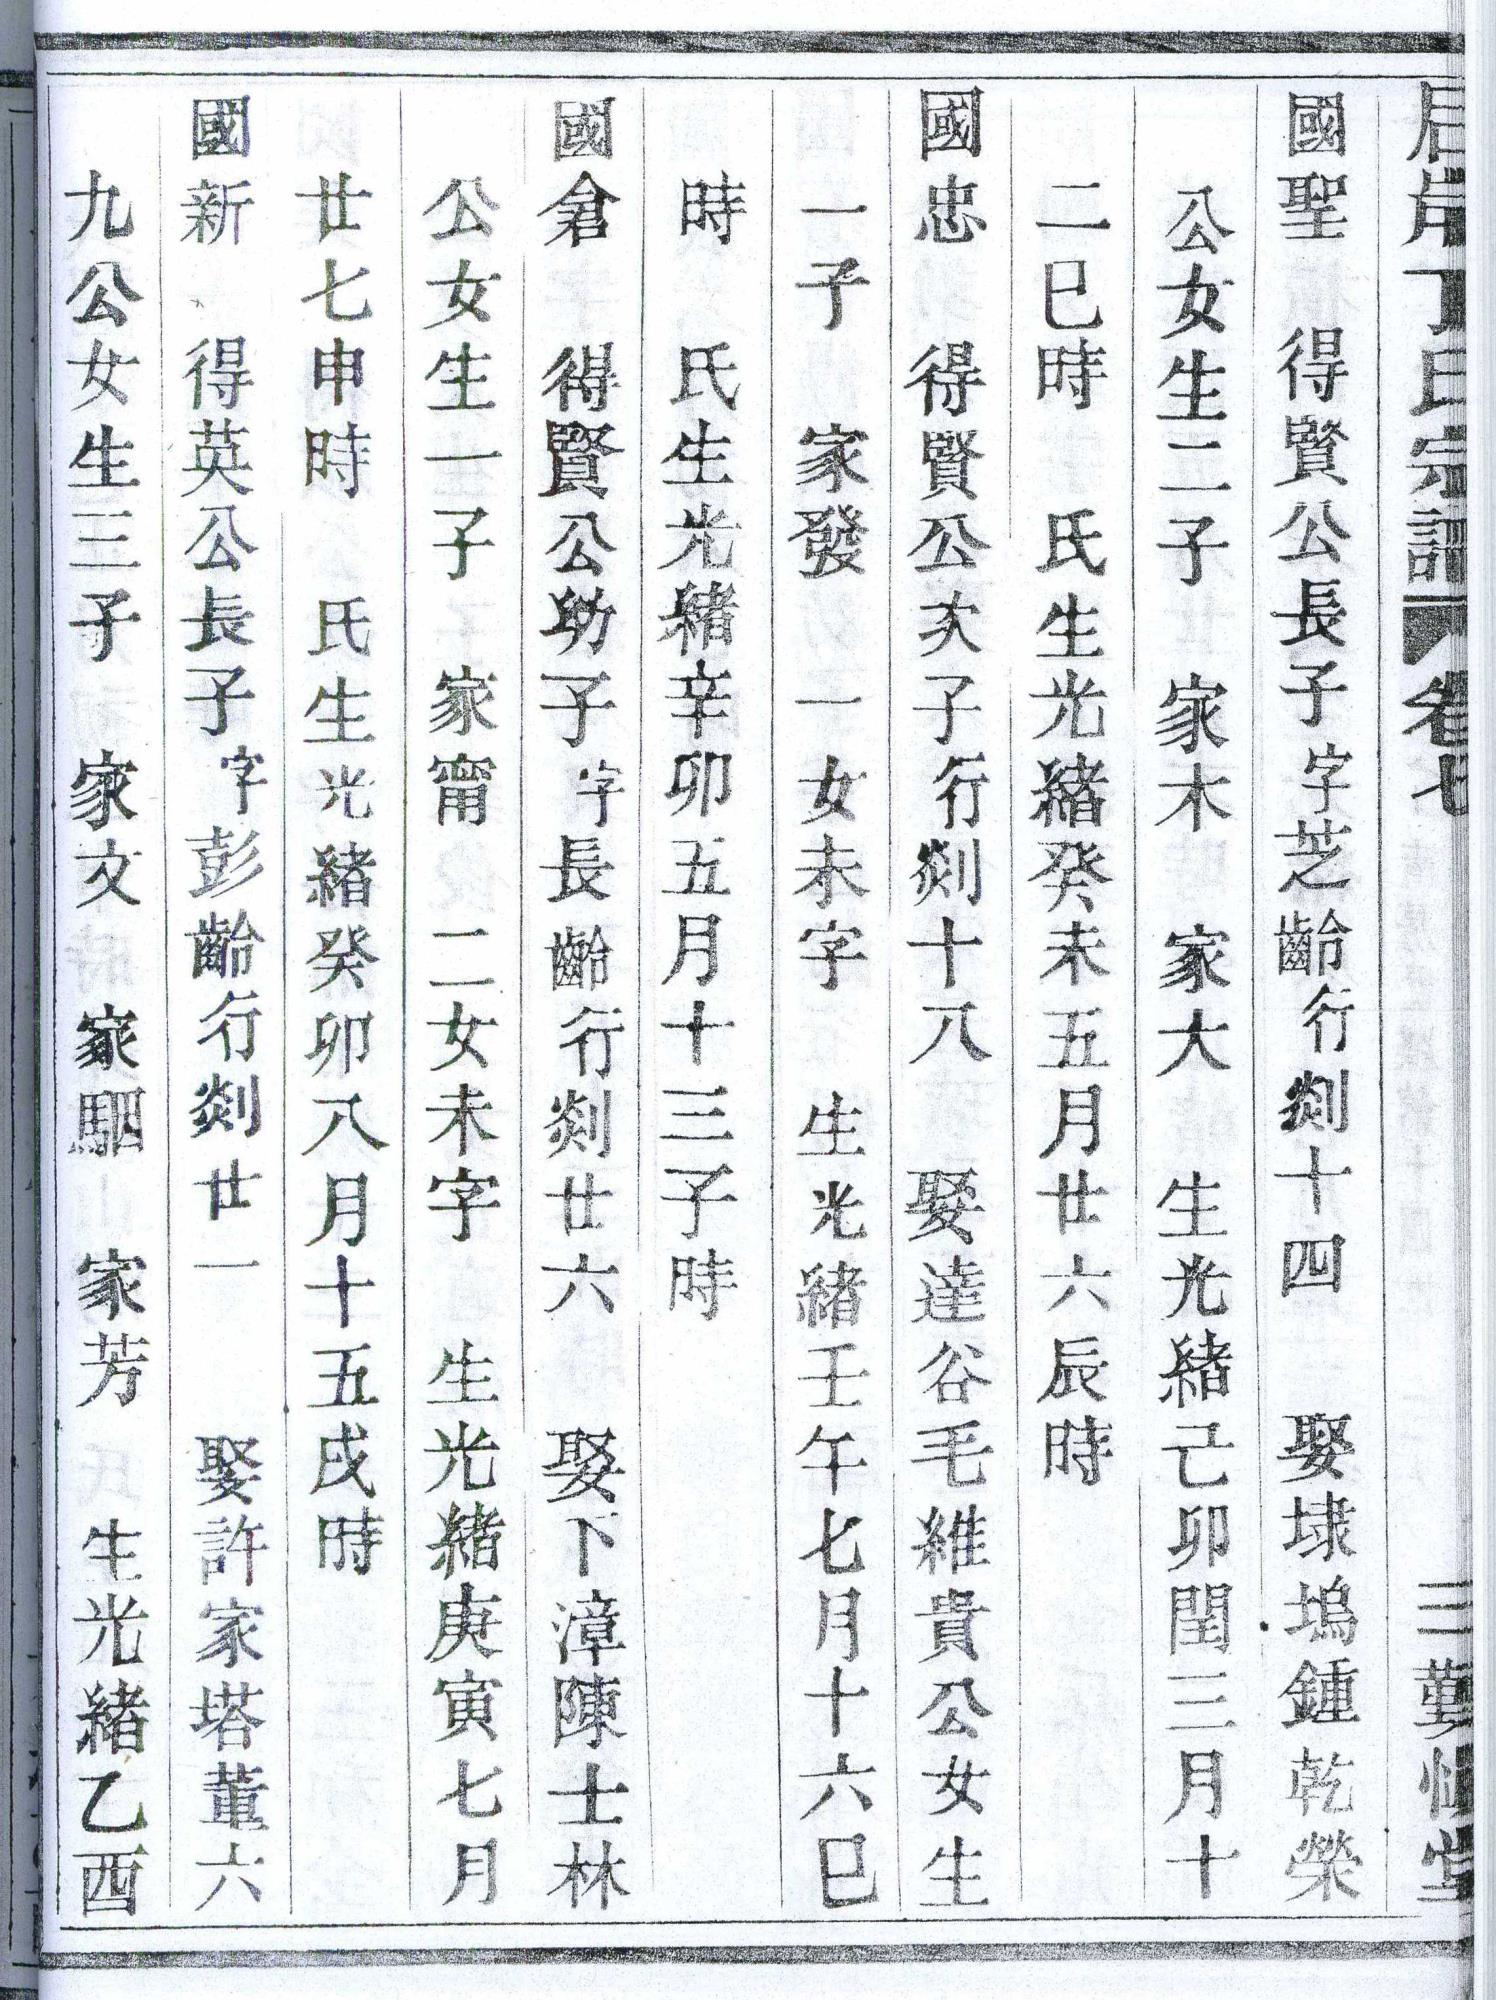 丁氏宗譜 卷七 三勤惟堂
國聖 得賢公長子字芝齡行剡十四 娶埭塢鍾乾榮
公女生二子 家木 家大 生光緒己卯閏三月十
二巳時 氏生光緒癸未五月廿六辰時
國忠 得賢公次子行剡十八 娶達谷毛維貴公女生
一子 家發 一女未字 生光緒壬午七月十六巳
時 氏生光緒辛卯五月十三子時
國倉 得賢公幼子字長齡行剡廿六 娶下漳陳士林
公女生一子 家甯 二女未字 生光緒庚寅七月
廿七申時 氏生光緒癸卯八月十五戌時
國新 得英公長子字彭齡行剡廿一 娶許家塔董六
九公女生三子 家文 家駟 家芳 生光緒乙酉